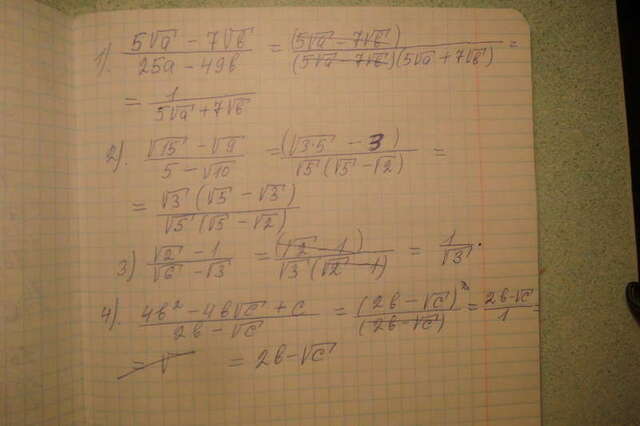 1). (5√a − 7√b)/(25a − 49b) = (5√a − 7√b)/((5√a − 7√b)(5√a + 7√b)) =
= 1/(5√a + 7√b)
2). (√15 − √9)/(5 − √10) = (√3·5 − 3)/(√5(√5 − √2)) =
= √3(√5 − √3)/(√5(√5 − √2))
3) (√2 − 1)/(√6 − √3) = (√2 − 1)/(√3(√2 − 1)) = 1/√3.
4). (4b² − 4b√c + c)/(2b − √c) = (2b − √c)²/(2b − √c) = (2b − √c)/1 =
= 2b − √c